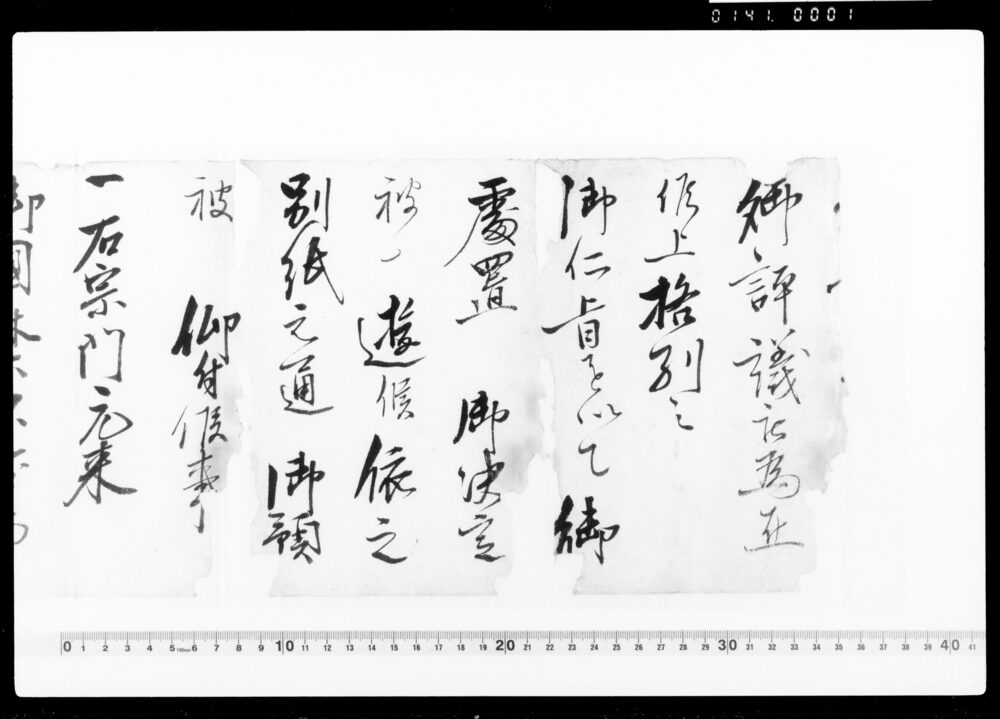 0141. 0001
御評議被為在
候上格別之
御仁旨を以て御
處置 御決定
被 遊候依之
別紙之通 御預
被 仰付候事
一右宗門元来
御國
0 1 2 3 4 5 150cm 6 7 8 9 10 11 12 13 14 15 16 17 18 19 20 21 22 23 24 25 26 27 28 29 30 31 32 33 34 35 36 37 38 39 40 41